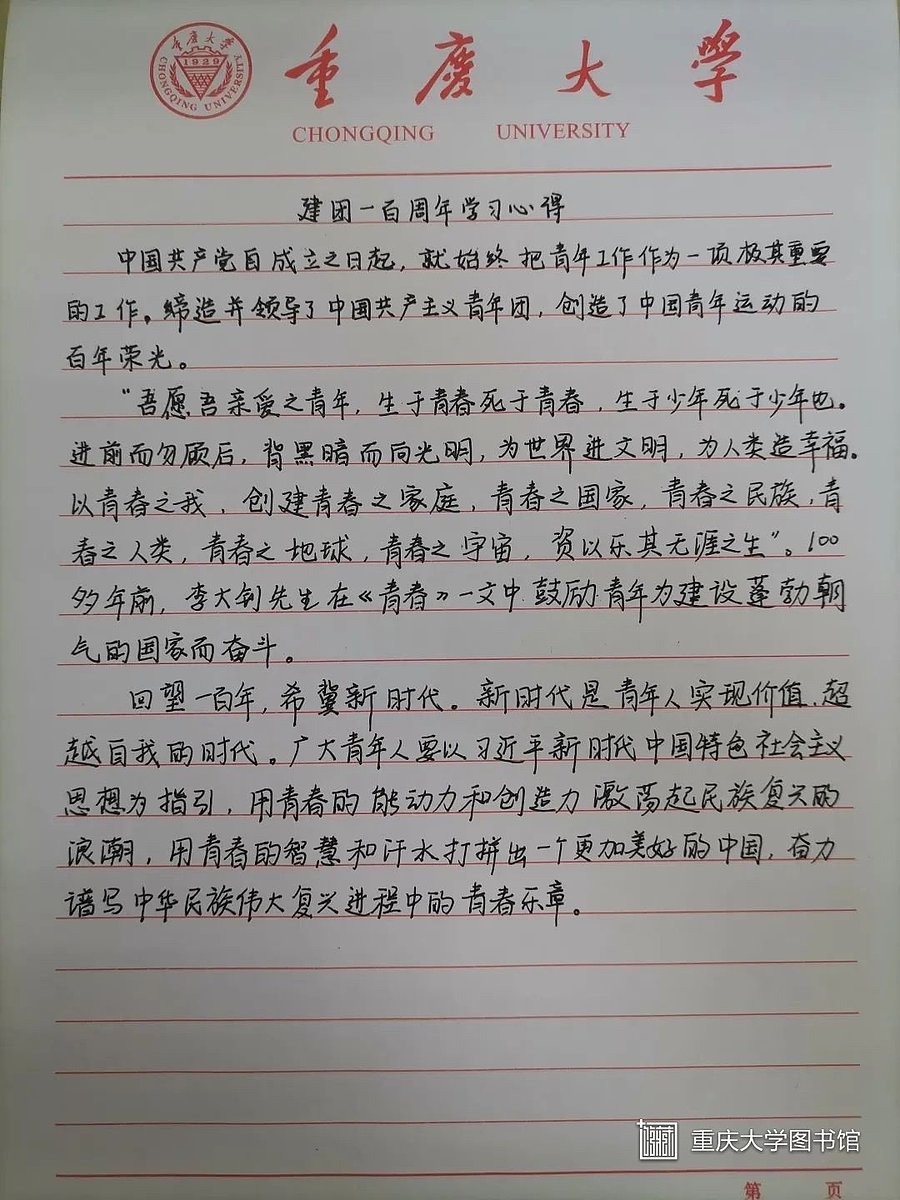 重庆大学
1929
CHONGQING UNIVERSITY
重慶大學
CHONGQING UNIVERSITY
建团一百周年学习心得
中国共产党自成立之日起，就始终把青年工作作为一项极其重要
的工作。缔造并领导了中国共产主义青年团，创造了中国青年运动的
百年荣光。
“吾愿吾亲爱之青年，生于青春死于青春，生于少年死于少年也。
进前而勿顾后，背黑暗而向光明，为世界进文明，为人类造幸福。
以青春之我，创建青春之家庭，青春之国家，青春之民族，青
春之人类，青春之地球，青春之宇宙，资以乐其无涯之生”。100
多年前，李大钊先生在《青春》一文中鼓励青年为建设蓬勃朝
气的国家而奋斗。
回望一百年，希冀新时代。新时代是青年人实现价值、超
越自我的时代。广大青年人要以习近平新时代中国特色社会主义
思想为指引，用青春的能动力和创造力激荡起民族复兴的
浪潮，用青春的智慧和汗水打拼出一个更加美好的中国，奋力
谱写中华民族伟大复兴进程中的青春乐章。
重庆大学图书馆
第 页